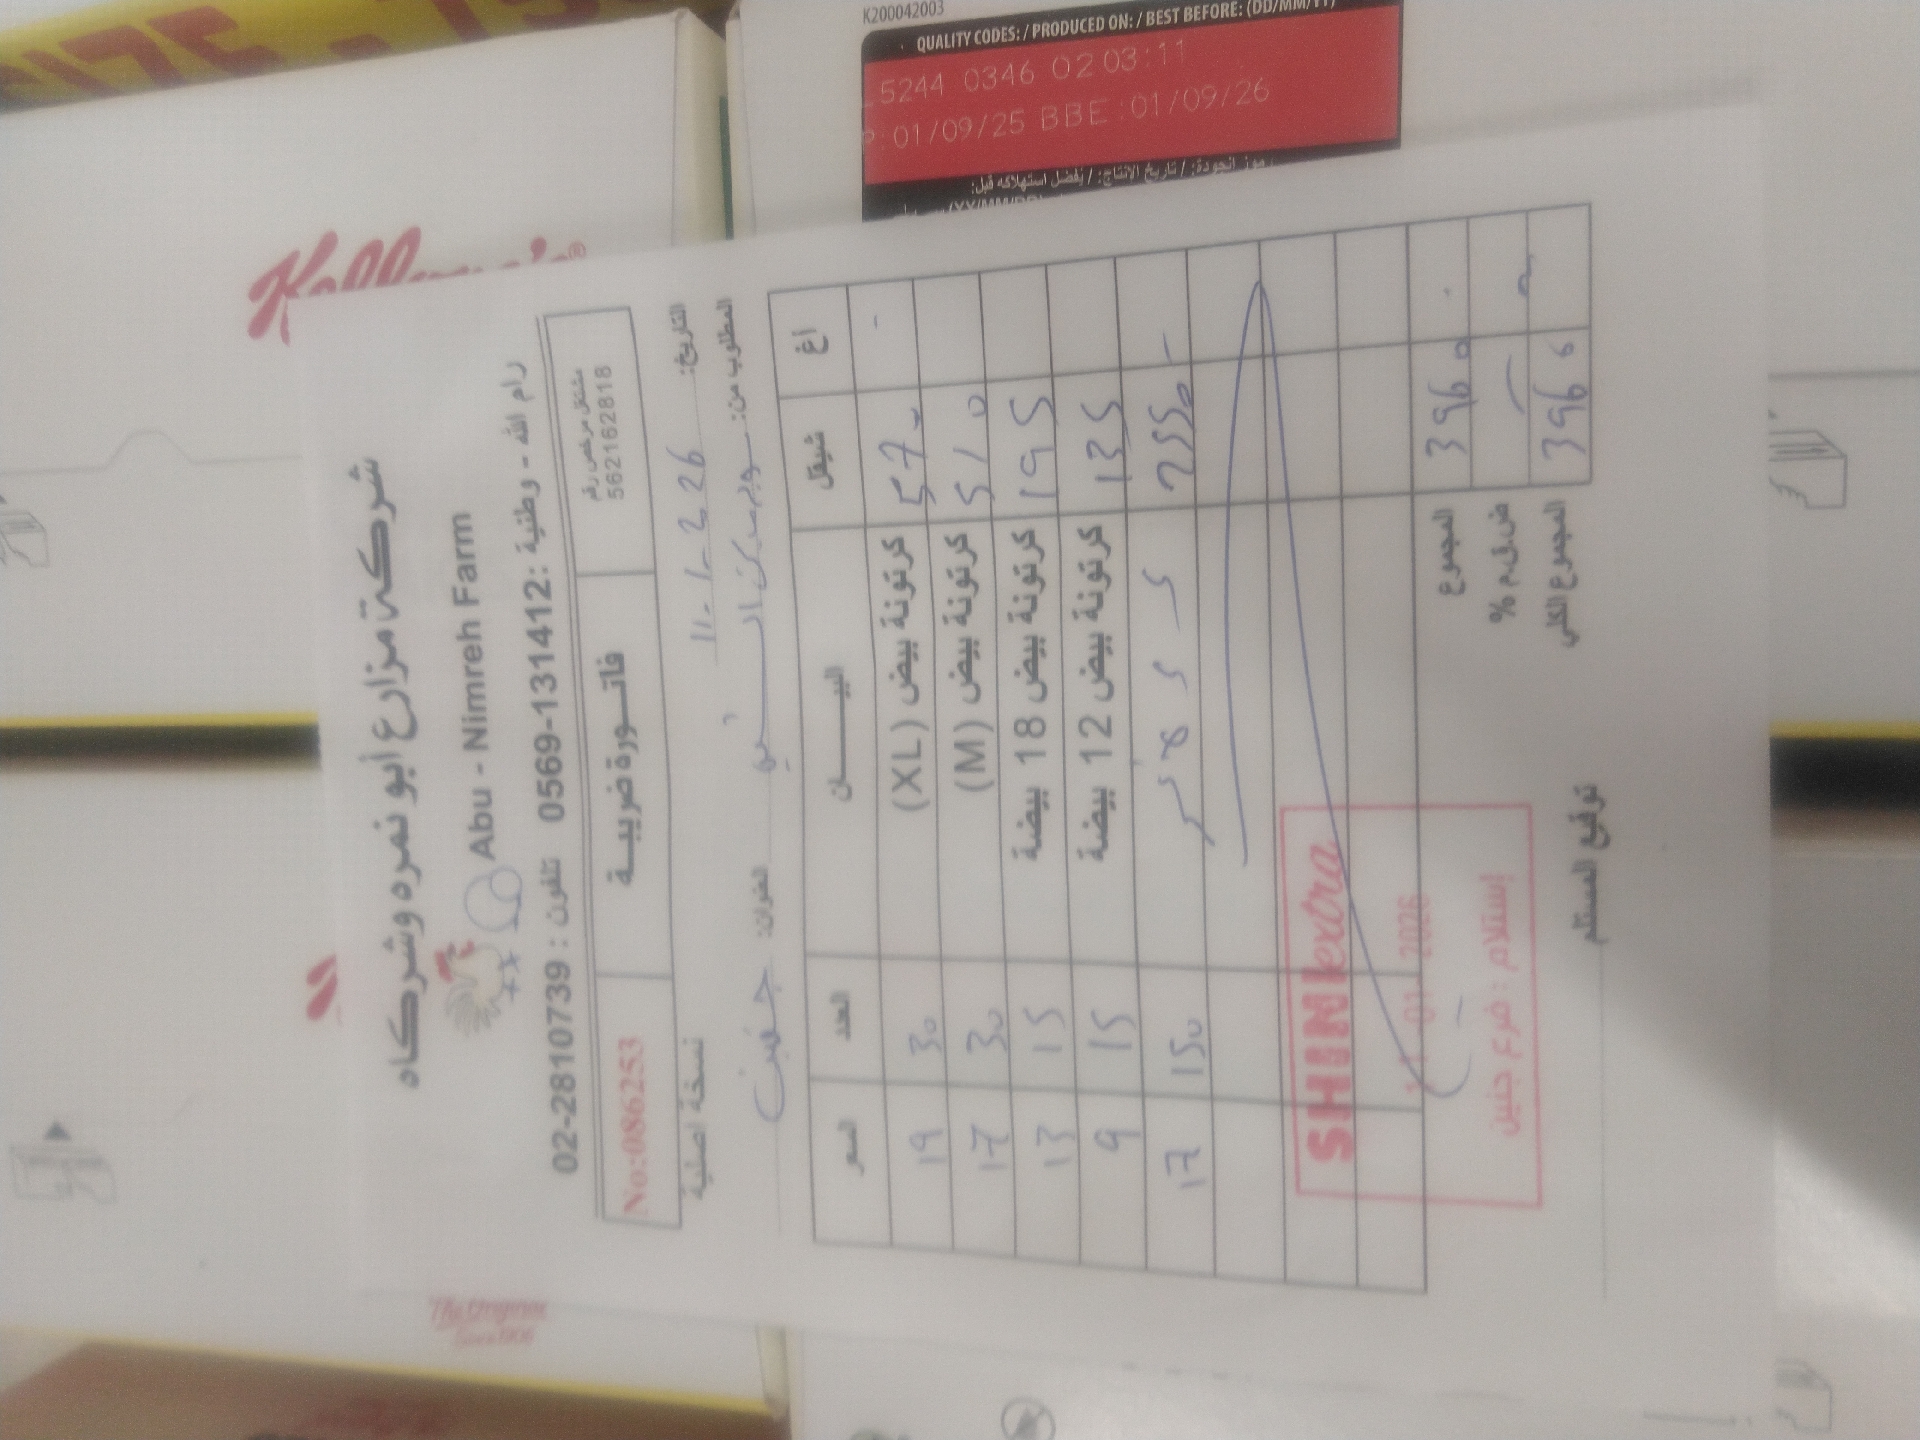 K200042003
QUALITY CODES: / PRODUCED ON: / BEST BEFORE: (DD/MM/YY)
5244 0346 02 03:11
P: 01/09/25 BBE :01/09/26
رموز الجودة: / تاريخ الانتاج: / يفضل استهلاكه قبل:
Kellogg's®
The Original
شركة مزارع أبو نمره وشركاه
Abu - Nimreh Farm
رام الله - وطنية : 0569-131412 تلفون : 02-2810739
مشتغل مرخص رقم 562162818
فاتورة ضريبية
No:086253
التاريخ: 11-1-2026
نسخة أصلية
المطلوب من: سوبر ماركت الشني العنوان: جنين
أغ شيقل البيان العدد السعر
- 570 كرتونة بيض (XL) 30 19
510 كرتونة بيض (M) 30 17
195 كرتونة بيض 18 بيضة 15 13
135 كرتونة بيض 12 بيضة 15 9
- 2550 150 17
المجموع 3960
ض.ق.م %
المجموع الكلي 3960
SHINI extra
11-01-2026
إستلام : فرع جنين
توقيع المستلم